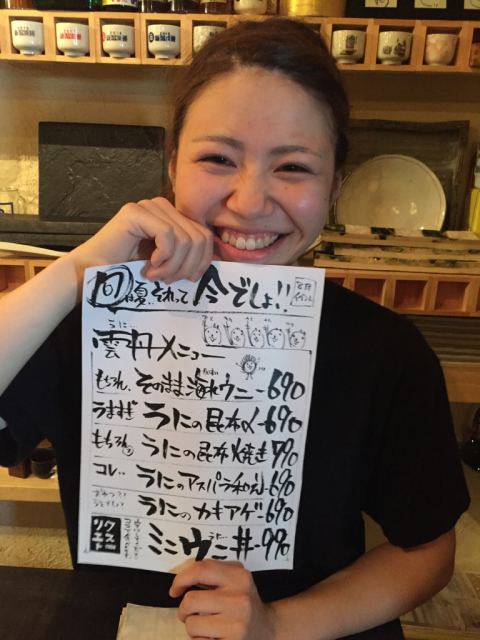 旬 優。それって 今でしょ!!
うに…
雲丹メニュー
もちろん、そのまま海水ウニ-690
うますぎ うにの昆布〆-690
もちろん うにの昆布焼き 790
コレ‥ うにのアスパラ和え-690
うにのカキアゲ-690
リクエスト
ミニウニ丼-990